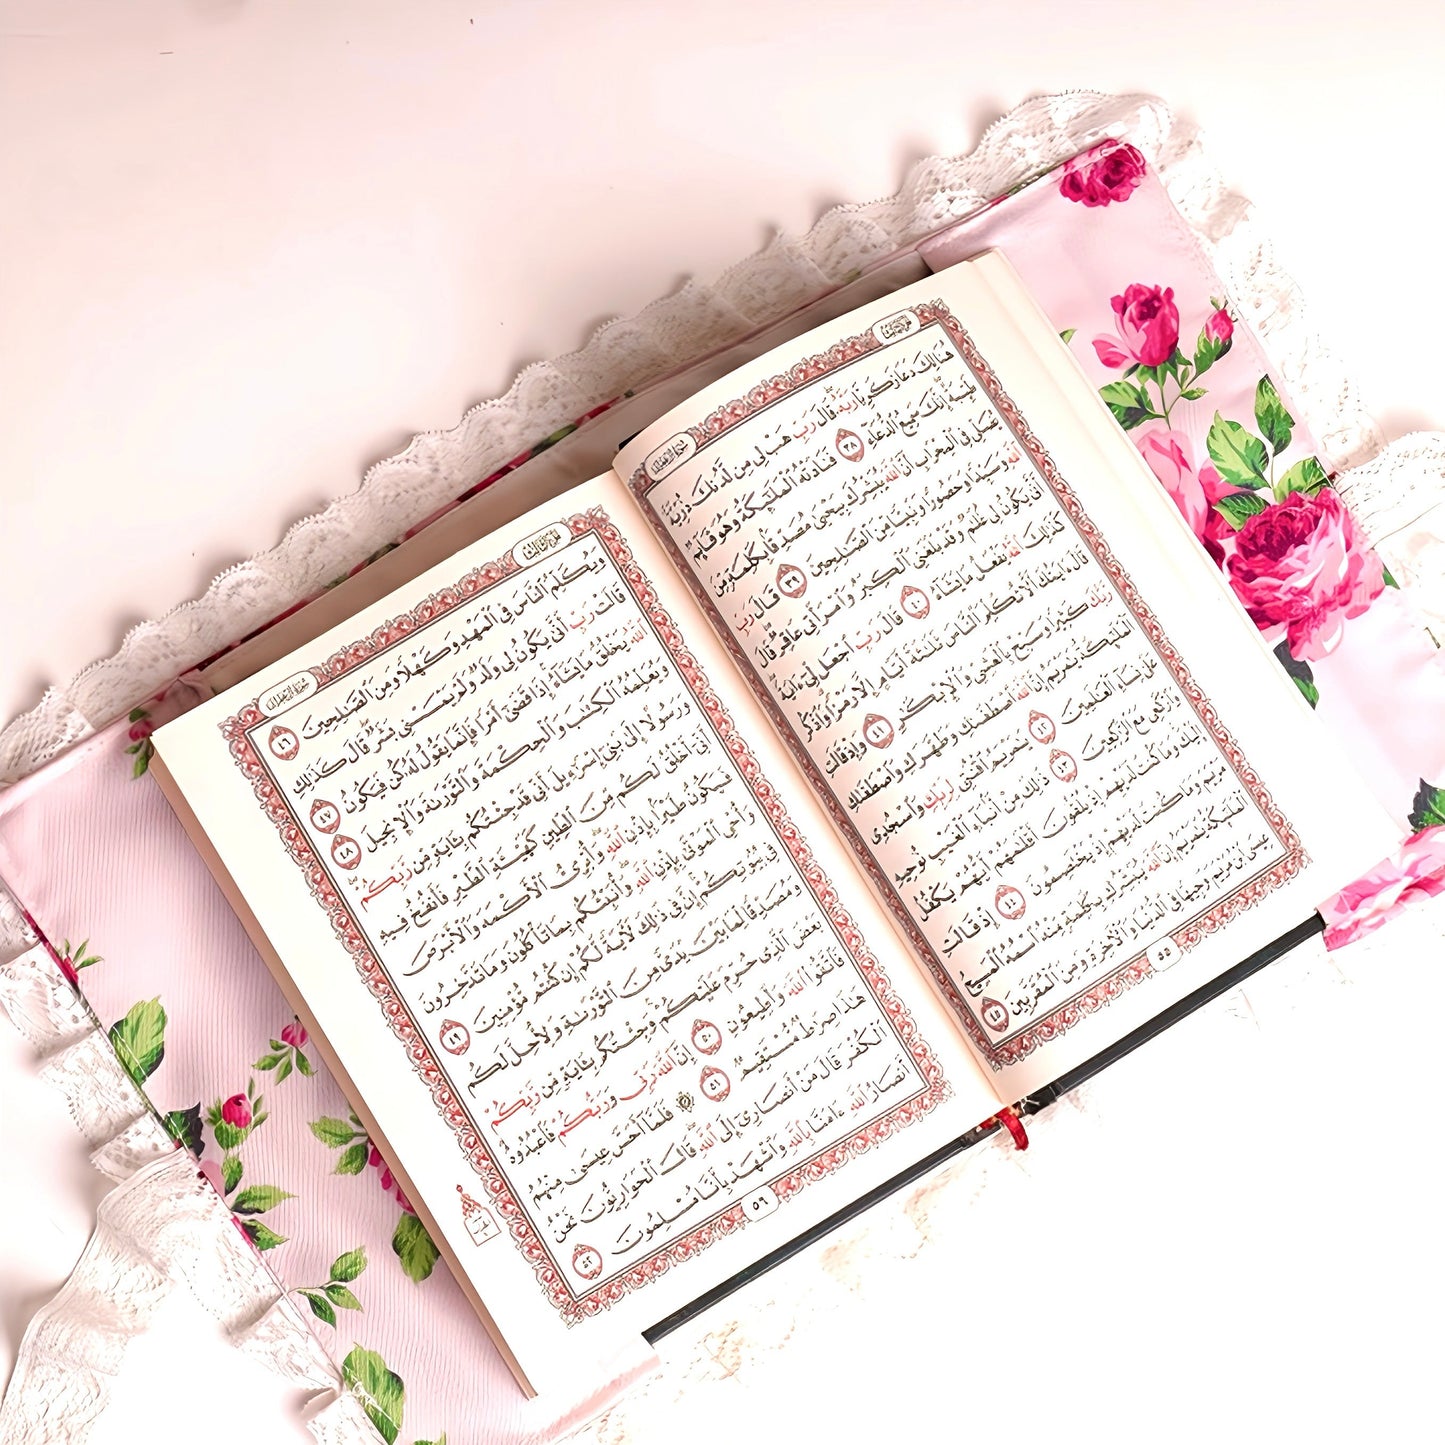 سورة آل عمران
الجزء الثالث
هُنَالِكَ دَعَا زَكَرِيَّا رَبَّهُۥ ۖ قَالَ رَبِّ هَبْ لِى مِن لَّدُنكَ ذُرِّيَّةً
طَيِّبَةً ۖ إِنَّكَ سَمِيعُ ٱلدُّعَآءِ ٣٨ فَنَادَتْهُ ٱلْمَلَٰٓئِكَةُ وَهُوَ قَآئِمٌ
يُصَلِّى فِى ٱلْمِحْرَابِ أَنَّ ٱللَّهَ يُبَشِّرُكَ بِيَحْيَىٰ مُصَدِّقًۢا بِكَلِمَةٍ مِّنَ
ٱللَّهِ وَسَيِّدًا وَحَصُورًا وَنَبِيًّا مِّنَ ٱلصَّٰلِحِينَ ٣٩ قَالَ رَبِّ
أَنَّىٰ يَكُونُ لِى غُلَٰمٌ وَقَدْ بَلَغَنِىَ ٱلْكِبَرُ وَٱمْرَأَتِى عَاقِرٌ ۖ قَالَ
كَذَٰلِكَ ٱللَّهُ يَفْعَلُ مَا يَشَآءُ ٤٠ قَالَ رَبِّ ٱجْعَل لِّىٓ ءَايَةً ۖ
قَالَ ءَايَتُكَ أَلَّا تُكَلِّمَ ٱلنَّاسَ ثَلَٰثَةَ أَيَّامٍ إِلَّا رَمْزًا ۗ وَٱذْكُر
رَّبَّكَ كَثِيرًا وَسَبِّحْ بِٱلْعَشِىِّ وَٱلْإِبْكَٰرِ ٤١ وَإِذْ قَالَتِ
ٱلْمَلَٰٓئِكَةُ يَٰمَرْيَمُ إِنَّ ٱللَّهَ ٱصْطَفَىٰكِ وَطَهَّرَكِ وَٱصْطَفَىٰكِ
عَلَىٰ نِسَآءِ ٱلْعَٰلَمِينَ ٤٢ يَٰمَرْيَمُ ٱقْنُتِى لِرَبِّكِ وَٱسْجُدِى
وَٱرْكَعِى مَعَ ٱلرَّٰكِعِينَ ٤٣ ذَٰلِكَ مِنْ أَنۢبَآءِ ٱلْغَيْبِ نُوحِيهِ
إِلَيْكَ ۚ وَمَا كُنتَ لَدَيْهِمْ إِذْ يُلْقُونَ أَقْلَٰمَهُمْ أَيُّهُمْ يَكْفُلُ
مَرْيَمَ وَمَا كُنتَ لَدَيْهِمْ إِذْ يَخْتَصِمُونَ ٤٤ إِذْ قَالَتِ
ٱلْمَلَٰٓئِكَةُ يَٰمَرْيَمُ إِنَّ ٱللَّهَ يُبَشِّرُكِ بِكَلِمَةٍ مِّنْهُ ٱسْمُهُ ٱلْمَسِيحُ
عِيسَى ٱبْنُ مَرْيَمَ وَجِيهًا فِى ٱلدُّنْيَا وَٱلْءَاخِرَةِ وَمِنَ ٱلْمُقَرَّبِينَ ٤٥
٥٥
الجزء الثالث
سورة آل عمران
وَيُكَلِّمُ ٱلنَّاسَ فِى ٱلْمَهْدِ وَكَهْلًا وَمِنَ ٱلصَّٰلِحِينَ ٤٦
قَالَتْ رَبِّ أَنَّىٰ يَكُونُ لِى وَلَدٌ وَلَمْ يَمْسَسْنِى بَشَرٌ ۖ قَالَ كَذَٰلِكِ
ٱللَّهُ يَخْلُقُ مَا يَشَآءُ ۚ إِذَا قَضَىٰٓ أَمْرًا فَإِنَّمَا يَقُولُ لَهُۥ كُن فَيَكُونُ ٤٧
وَيُعَلِّمُهُ ٱلْكِتَٰبَ وَٱلْحِكْمَةَ وَٱلتَّوْرَىٰةَ وَٱلْإِنجِيلَ ٤٨
وَرَسُولًا إِلَىٰ بَنِىٓ إِسْرَٰٓءِيلَ أَنِّى قَدْ جِئْتُكُم بِـَٔايَةٍ مِّن رَّبِّكُمْ ۖ
أَنِّىٓ أَخْلُقُ لَكُم مِّنَ ٱلطِّينِ كَهَيْـَٔةِ ٱلطَّيْرِ فَأَنفُخُ فِيهِ
فَيَكُونُ طَيْرًۢا بِإِذْنِ ٱللَّهِ ۖ وَأُبْرِئُ ٱلْأَكْمَهَ وَٱلْأَبْرَصَ
وَأُحْىِ ٱلْمَوْتَىٰ بِإِذْنِ ٱللَّهِ ۖ وَأُنَبِّئُكُم بِمَا تَأْكُلُونَ وَمَا تَدَّخِرُونَ
فِى بُيُوتِكُمْ ۚ إِنَّ فِى ذَٰلِكَ لَءَايَةً لَّكُمْ إِن كُنتُم مُّؤْمِنِينَ ٤٩
وَمُصَدِّقًا لِّمَا بَيْنَ يَدَىَّ مِنَ ٱلتَّوْرَىٰةِ وَلِأُحِلَّ لَكُم
بَعْضَ ٱلَّذِى حُرِّمَ عَلَيْكُمْ ۚ وَجِئْتُكُم بِـَٔايَةٍ مِّن رَّبِّكُمْ
فَٱتَّقُوا۟ ٱللَّهَ وَأَطِيعُونِ ٥٠ إِنَّ ٱللَّهَ رَبِّى وَرَبُّكُمْ فَٱعْبُدُوهُ ۗ
هَٰذَا صِرَٰطٌ مُّسْتَقِيمٌ ٥١ ۞ فَلَمَّآ أَحَسَّ عِيسَىٰ مِنْهُمُ
ٱلْكُفْرَ قَالَ مَنْ أَنصَارِىٓ إِلَى ٱللَّهِ ۖ قَالَ ٱلْحَوَارِيُّونَ نَحْنُ
أَنصَارُ ٱللَّهِ ءَامَنَّا بِٱللَّهِ وَٱشْهَدْ بِأَنَّا مُسْلِمُونَ ٥٢
٥٦